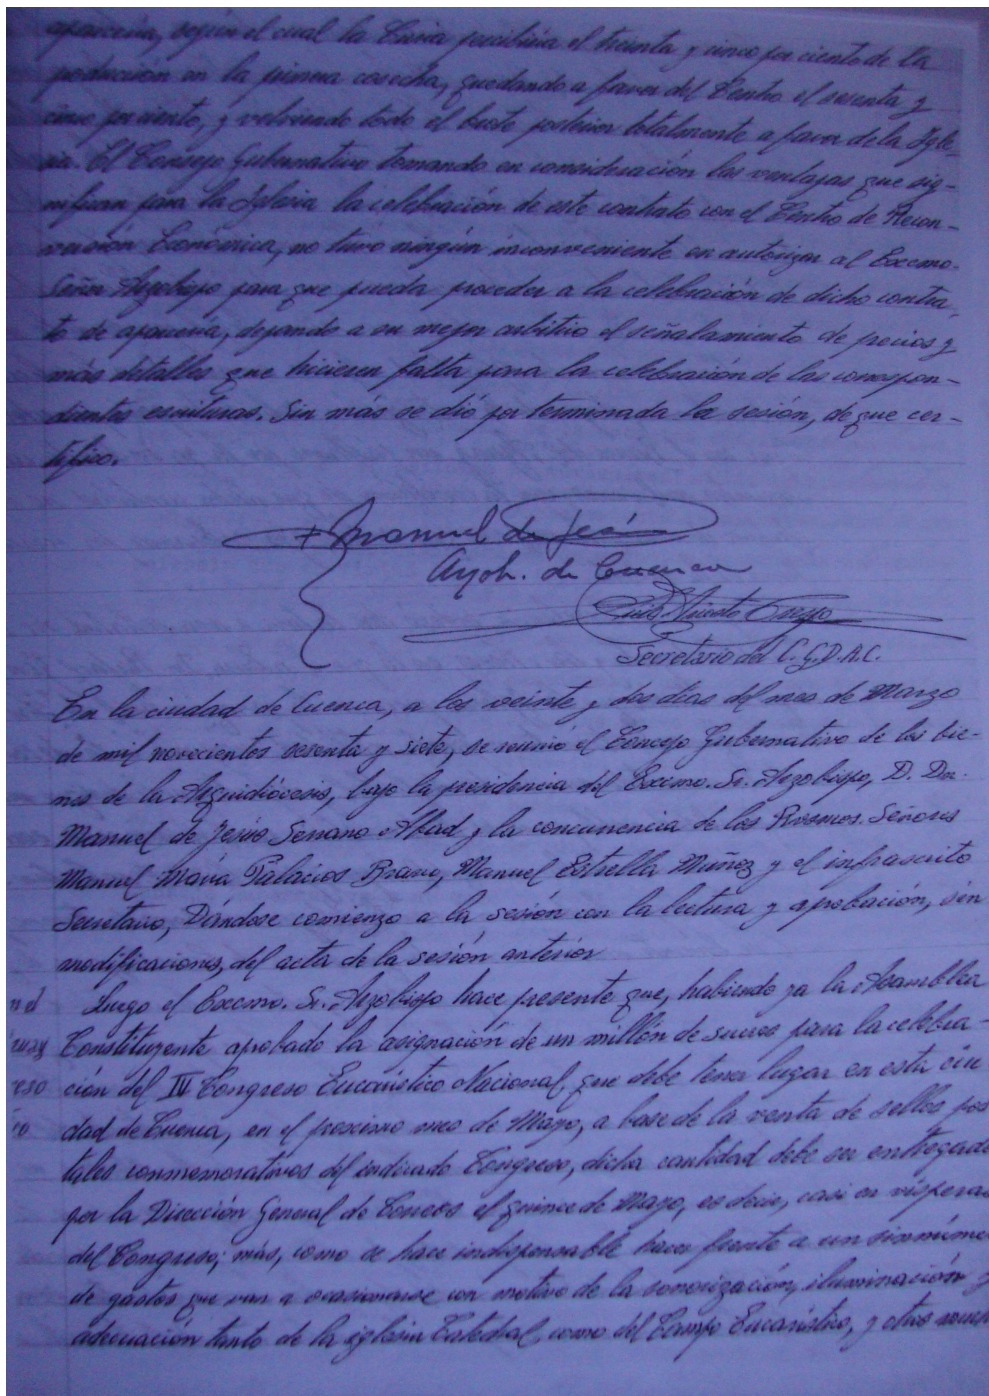 aparcería, según el cual la Curia percibiría el treinta y cinco por ciento de la
producción en la primera cosecha, quedando a favor del Centro el sesenta y
cinco por ciento, y volviendo todo el brote posterior totalmente a favor de la Igle-
sia. El Consejo Gubernativo tomando en consideración las ventajas que sig-
nifican para la Iglesia la celebración de este contrato con el Centro de Recon-
versión Económica, no tuvo ningún inconveniente en autorizar al Excmo.
Señor Arzobispo para que pueda proceder a la celebración de dicho contra-
to de aparcería, dejando a su mejor arbitrio el señalamiento de precios y
más detalles que hicieren falta para la celebración de las correspon-
dientes escrituras. Sin más se dió por terminada la sesión, de que cer-
tifico.
+ Manuel de Jesús
Arzob. de Cuenca
Luis Vicente Crespo
Secretario del C.G.D.A.C.
En la ciudad de Cuenca, a los veinte y dos días del mes de Marzo
de mil novecientos sesenta y siete, se reunió el Concejo Gubernativo de los bie-
nes de la Arquidiócesis, bajo la presidencia del Excmo. Sr. Arzobispo, D. Don.
Manuel de Jesús Serrano Abad y la concurrencia de los Rvsmos. Señores
Manuel María Palacios Bravo, Manuel Estrella Muñoz y el infrascrito
Secretario, Dándose comienzo a la sesión con la lectura y aprobación, sin
modificaciones, del acta de la sesión anterior
Luego el Excmo. Sr. Arzobispo hace presente que, habiendo ya la Asamblea
Constituyente aprobado la asignación de un millón de sucres para la celebra-
ción del IV Congreso Eucarístico Nacional, que debe tener lugar en esta ciu
dad de Cuenca, en el proximo mes de Mayo, a base de la venta de sellos pos
tales conmemorativos del indicado Congreso, dicha cantidad debe ser entregada
por la Dirección General de Correos el quince de Mayo, es decir, casi en vísperas
del Congreso; mas, como se hace indispensable hacer frente a un sinnúmero
de gastos que van a ocasionarse con motivo de la sonorización, iluminación y
adecuación tanto de la iglesia Catedral, como del Campo Eucarístico, y otras